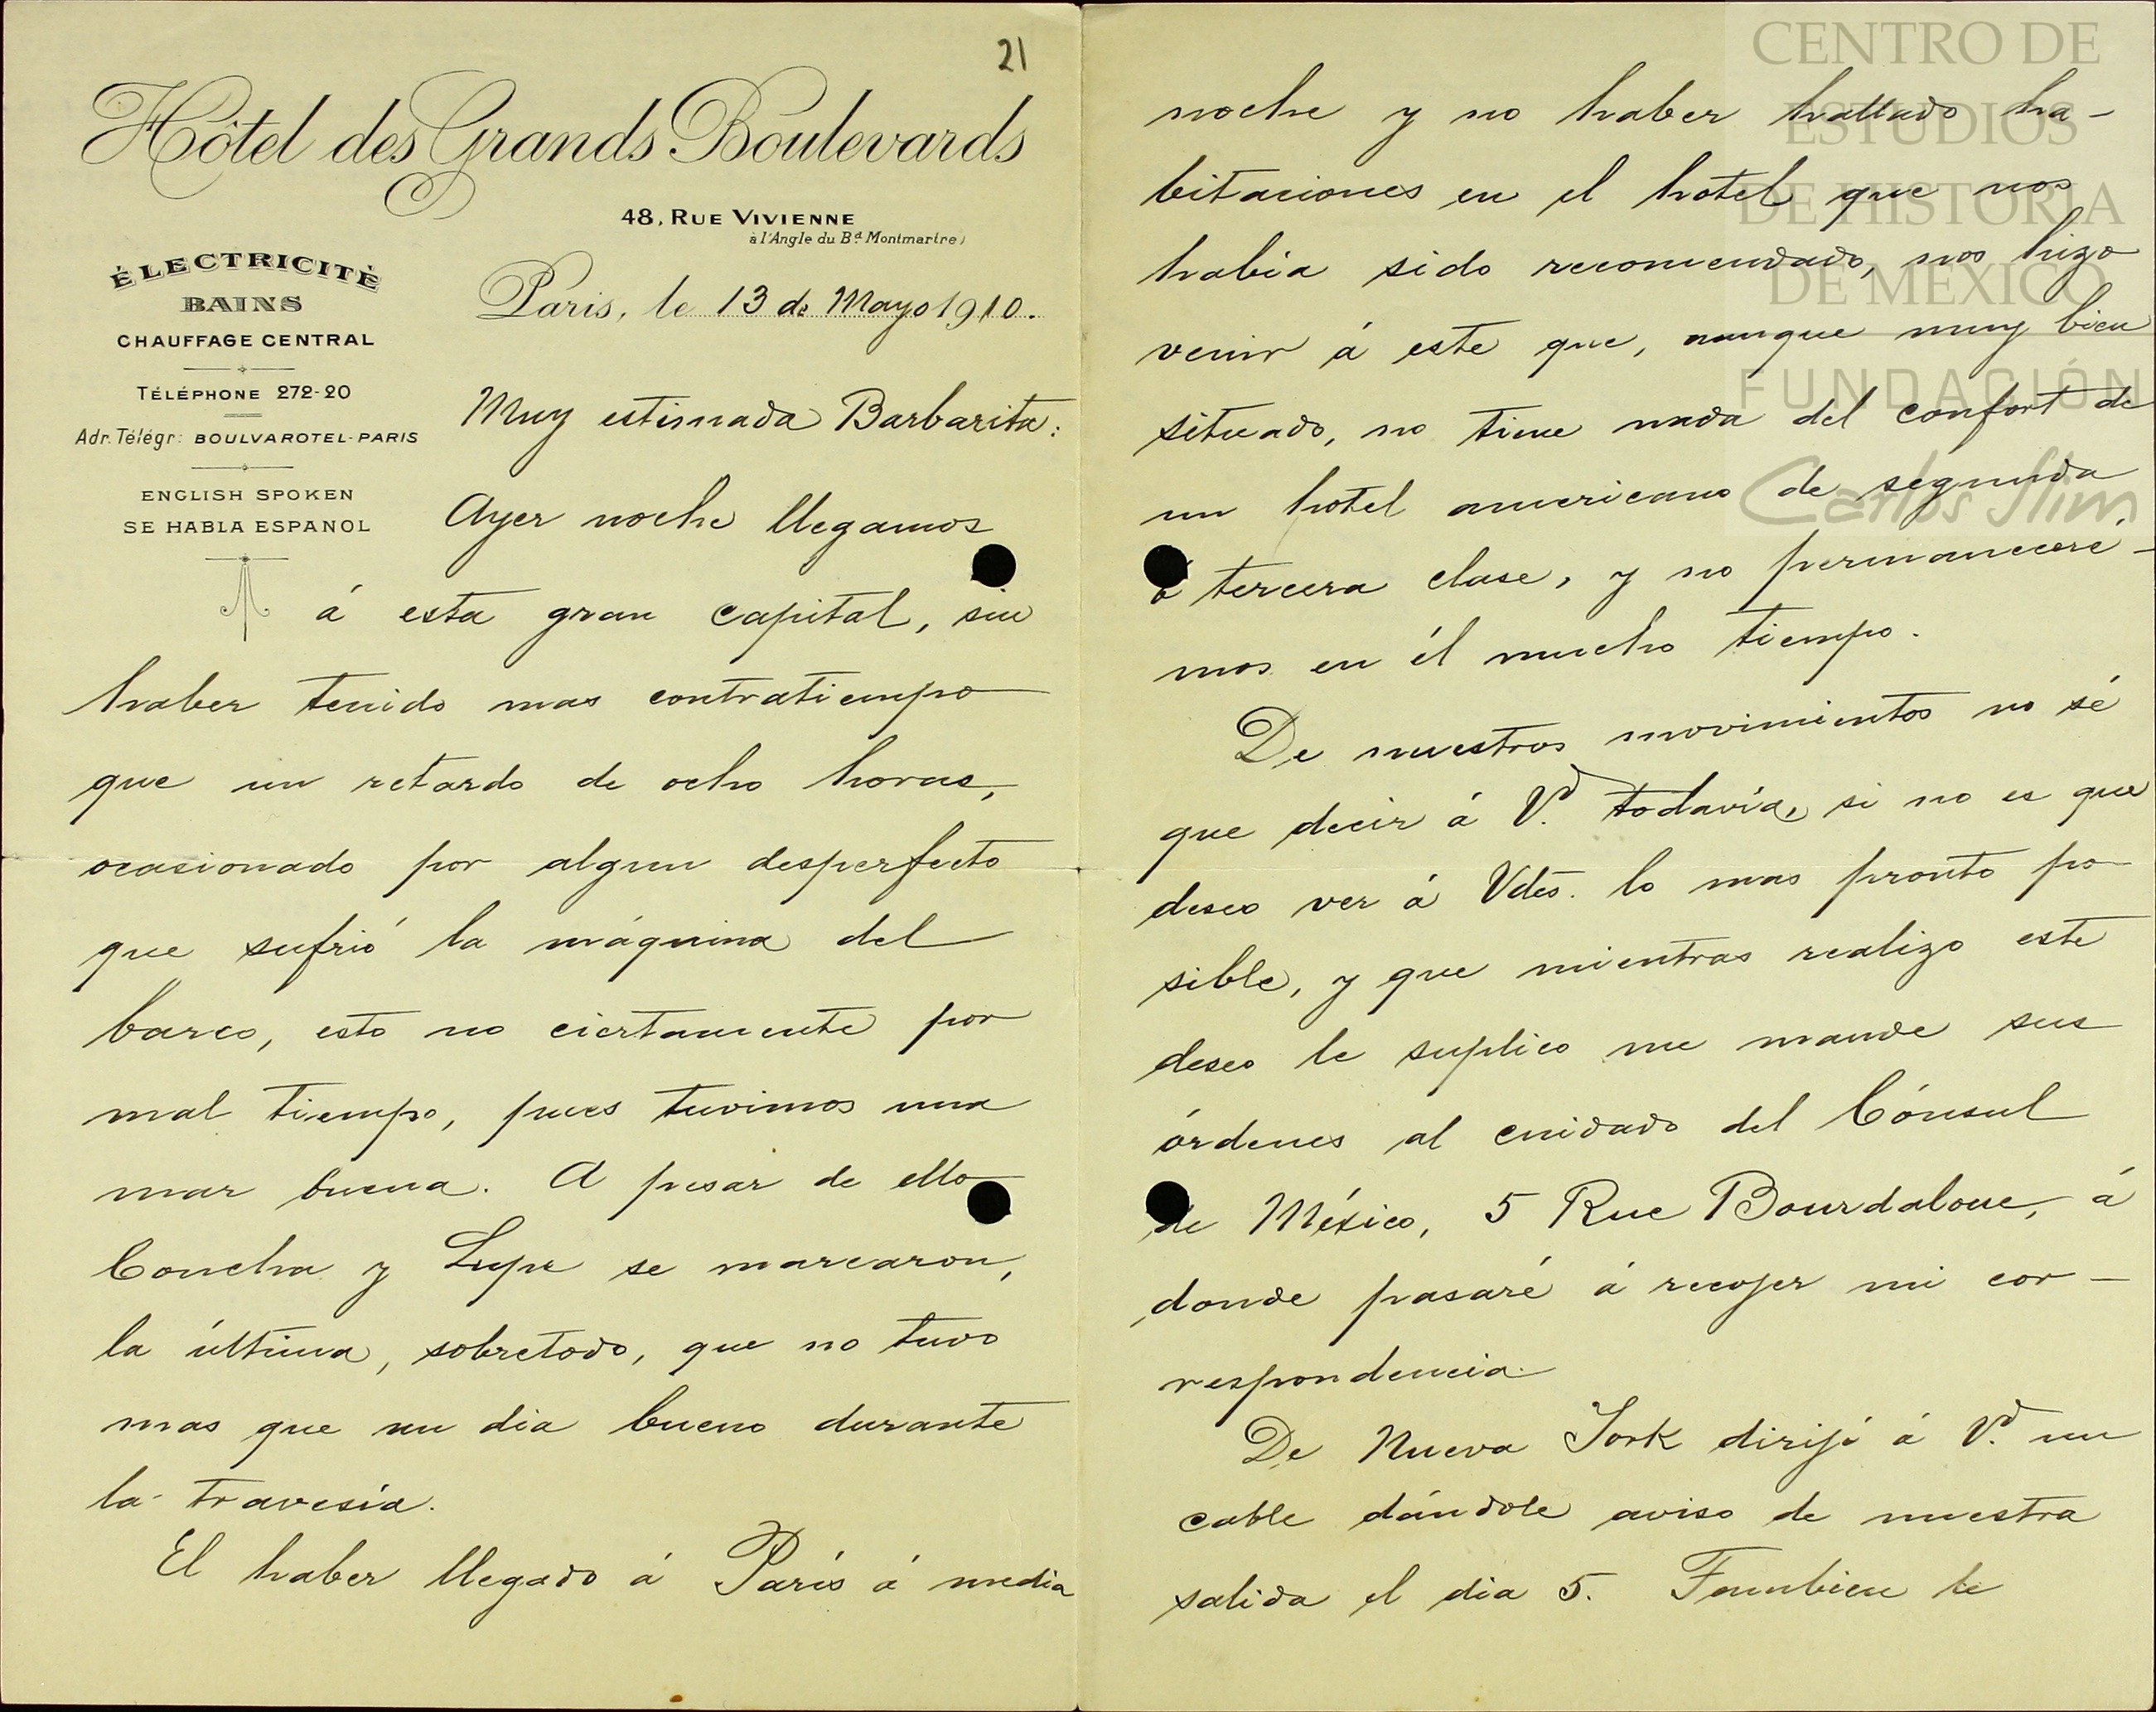 21
Hôtel des Grands Boulevards
48, RUE VIVIENNE
à l'Angle du Bd. Montmartre)
ÉLECTRICITÉ
BAINS
CHAUFFAGE CENTRAL
TÉLÉPHONE 272-20
Adr. Télégr: BOULVAROTEL-PARIS
ENGLISH SPOKEN
SE HABLA ESPANOL
Paris, le 13 de Mayo 1910.
Muy estimada Barbarita:
Ayer noche llegamos
á esta gran capital, sin
haber tenido mas contratiempo
que un retardo de ocho horas,
ocasionado por algun desperfecto
que sufrió la máquina del
barco, esto no ciertamente por
mal tiempo, pues tuvimos una
mar buena. A pesar de ello
Concha y Lupe se marearon,
la última, sobretodo, que no tuvo
mas que un dia bueno durante
la travesía.
El haber llegado á París á media
noche y no haber hallado ha-
bitaciones en el hotel que nos
habia sido recomendado, nos hizo
venir á este que, aunque muy bien
situado, no tiene nada del confort de
un hotel americano de segunda
ó tercera clase, y no permanecere-
mos en él mucho tiempo.
De nuestros movimientos no sé
que decir á Vd. todavía, si no es que
deseo ver á Vdes. lo mas pronto po-
sible, y que mientras realizo este
deseo le suplico me mande sus
órdenes al cuidado del Cónsul
de México, 5 Rue Bourdaloue, á
donde pasaré á recojer mi cor-
respondencia.
De Nueva York dirijí á Vd. un
cable dándole aviso de nuestra
salida el dia 5. Tambien le
CENTRO DE
ESTUDIOS
DE HISTORIA
DE MEXICO
FUNDACIÓN
Carlos Slim